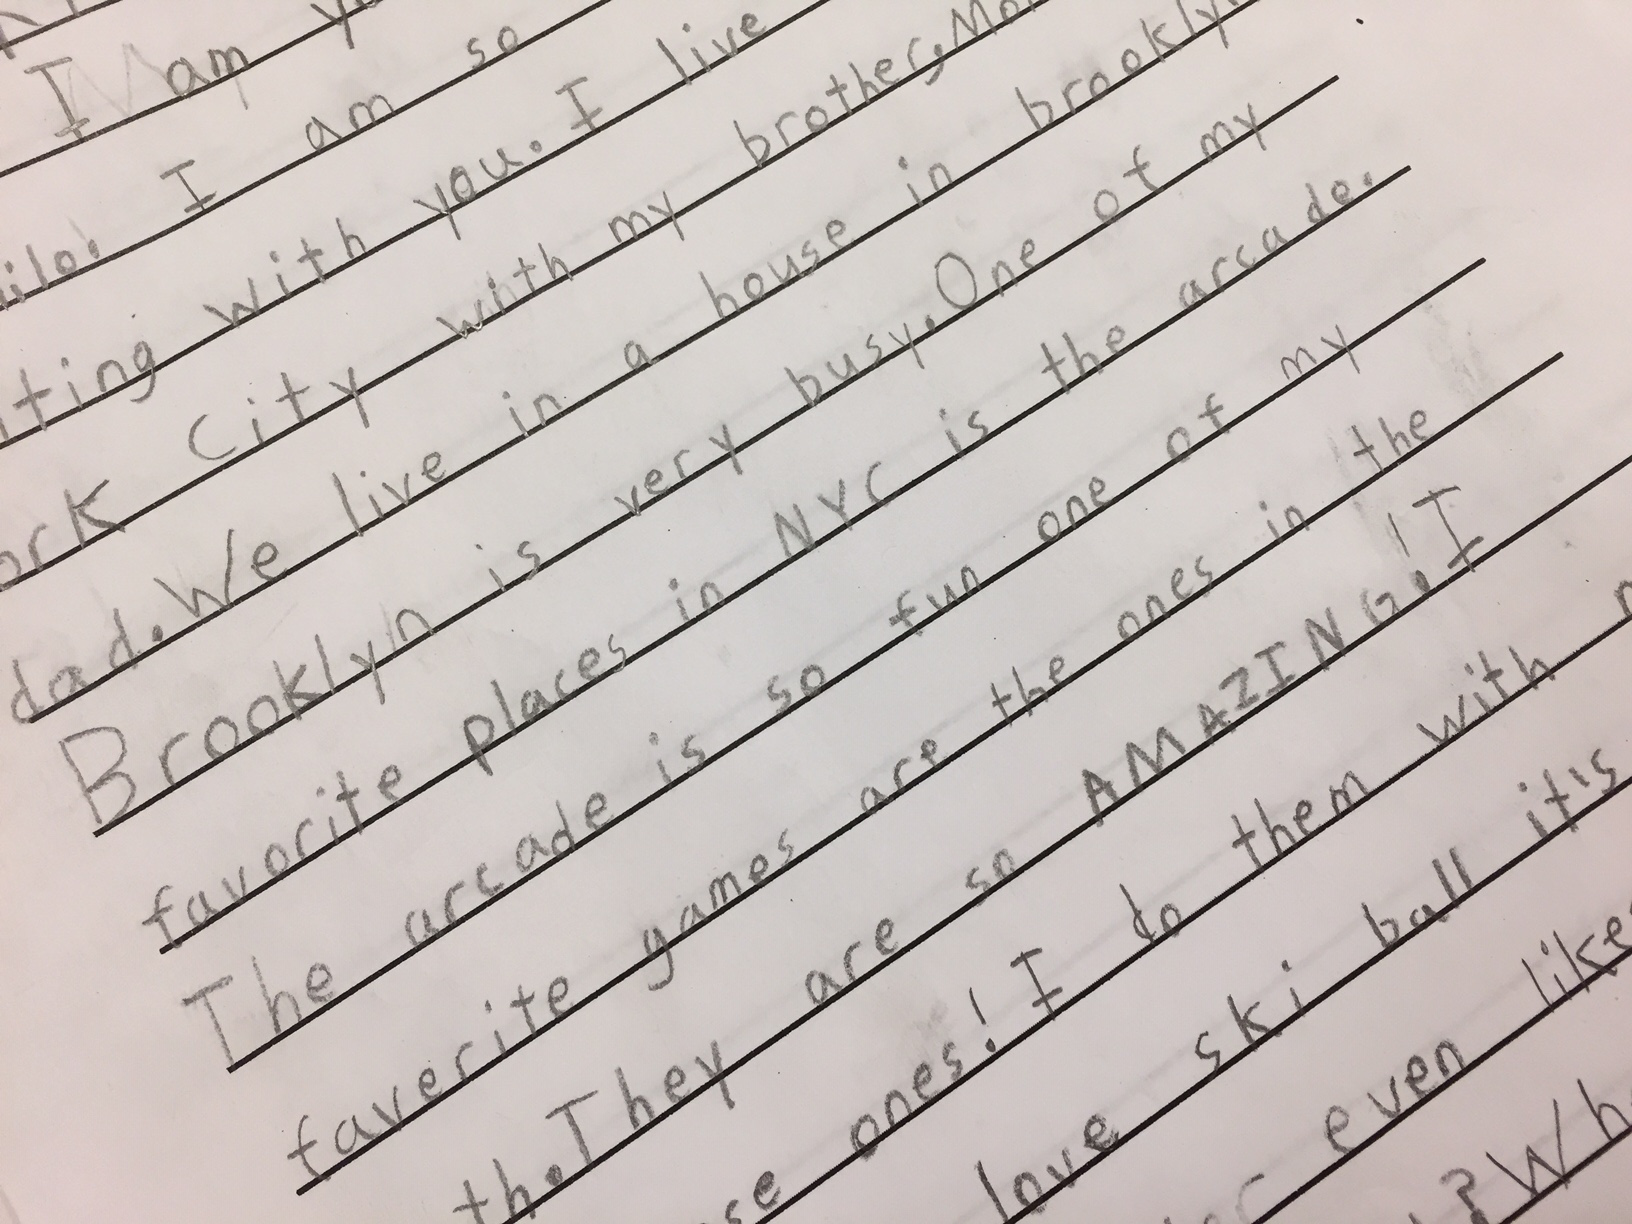 I am
I am so
with you. I live
City with my brother, Mo
dad. We live in a house in brookly
Brooklyn is very busy. One of my
favorite places in NYC is the arcade.
The arcade is so fun one of my
faverite games are the ones in the
th. They are so AMAZING! I
ones! I do them with
love ski ball it's
even like
? Wh